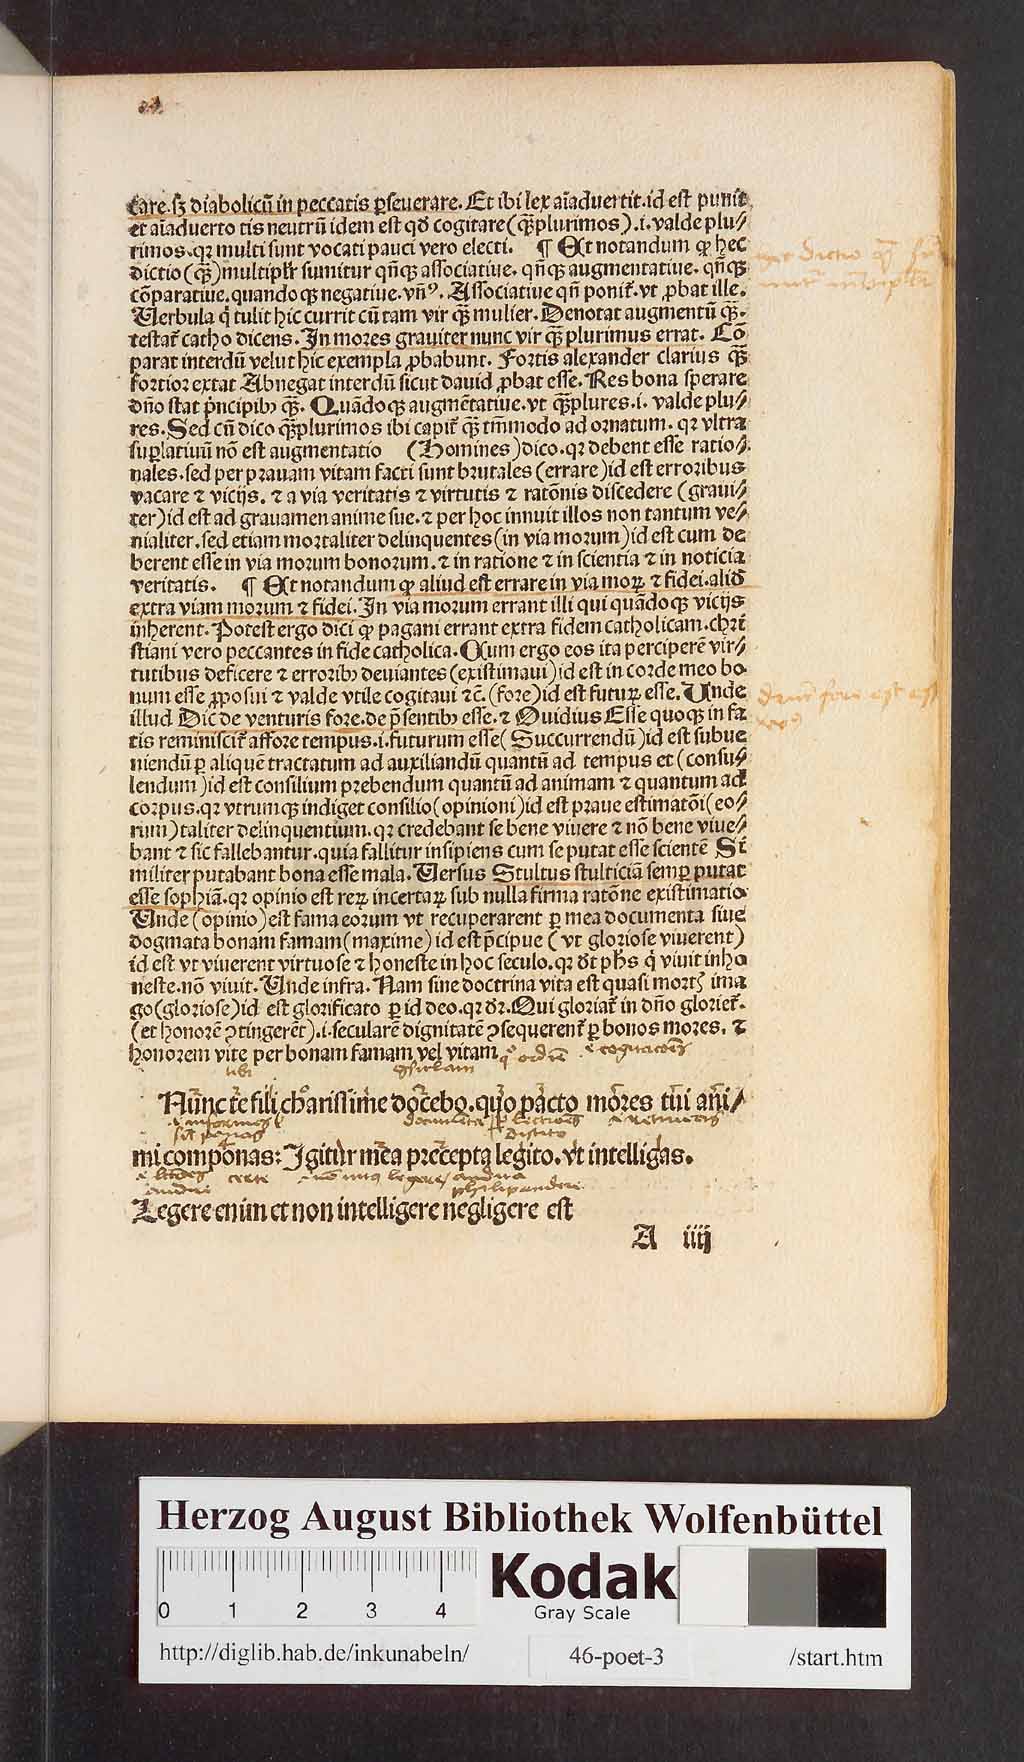 care.sꝫ diabolicū in peccatis ꝑseuerare. Et ibi lex aīaduertit.id est punit
et aīaduerto tis neutrū idem est qđ cogitare (q̄ꝫplurimos).i. valde plu⸗
rimos.qꝛ multi sunt vocati pauci vero electi. ¶ Et notandum ꝙ hec
dictio (q̄ꝫ) multipłr sumitur qn̄qꝫ associatiue. qn̄qꝫ augmentatiue. qn̄qꝫ
cōparatiue.quandoqꝫ negatiue.vn̄ꝰ. Associatiue qn̄ ponit᷑.vt ꝓbat ille.
Uerbula q̇ tulit hic currit cū tam vir q̄ꝫ mulier. Denotat augmentū q̄ꝫ.
testat᷑ catho dicens. In mores grauiter nunc vir q̄ꝫplurimus errat. Cō
parat interdū velut hic exempla ꝓbabunt. Fortis alexander clarius q̄ꝫ
fortior extat Abnegat interdū sicut dauid ꝓbat esse. Res bona sperare
dn̄o stat pͥncipibꝫ q̄ꝫ. Quādoqꝫ augmētatiue.vt q̄ꝫplures.i. valde plu⸗
res. Sed cū dico q̄ꝫplurimos ibi capit᷑ q̄ꝫ tm̄modo ad ornatum. qꝛ vltra
suꝑlatiuū nō est augmentatio (Homines) dico.qꝛ debent esse ratio⸗
nales.sed per prauam vitam facti sunt brutales (errare) id est erroribus
vacare ⁊ vicijs. ⁊ a via veritatis ⁊ virtutis ⁊ ratōnis discedere (graui⸗
ter) id est ad grauamen anime sue.⁊ per hoc innuit illos non tantum ve⸗
nialiter.sed etiam mortaliter delinquentes (in via morum) id est cum de
berent esse in via morum bonorum.⁊ in ratione ⁊ in scientia ⁊ in noticia
veritatis. ¶ Et notandum ꝙ aliud est errare in via moꝝ ⁊ fidei.aliđ
extra viam morum ⁊ fidei. In via morum errant illi qui quādoqꝫ vicijs
inherent. Potest ergo dici ꝙ pagani errant extra fidem catholicam.chri
stiani vero peccantes in fide catholica. Cum ergo eos ita perciperē vir⸗
tutibus deficere ⁊ erroribꝫ deuiantes (existimaui) id est in corde meo bo
num esse ꝓposui ⁊ valde vtile cogitaui ⁊c̄. (fore) id est futuꝝ esse. Unde
illud Dic de venturis fore.de p̄sentibꝫ esse. ⁊ Ouidius Esse quoqꝫ in fa
tis reminiscit᷑ affore tempus.i.futurum esse (Succurrendū) id est subue
niendū ꝑ aliquē tractatum ad auxiliandū quantū ad tempus et (consu⸗
lendum) id est consilium prebendum quantū ad animam ⁊ quantum ad
corpus.qꝛ vtrumqꝫ indiget consilio (opinioni) id est praue estimatōi (eo⸗
rum) taliter delinquentium.qꝛ credebant se bene viuere ⁊ nō bene viue⸗
bant ⁊ sic fallebantur.quia fallitur insipiens cum se putat esse scientē Si
militer putabant bona esse mala. Uersus Stultus stulticiā semꝑ putat
esse sophiā.qꝛ opinio est reꝝ incertaꝝ sub nulla firma ratōne existimatio
Unde (opinio) est fama eorum vt recuperarent ꝑ mea documenta siue
dogmata bonam famam (maxime) id est p̄cipue (vt gloriose viuerent)
id est vt viuerent virtuose ⁊ honeste in hoc seculo.qꝛ đt ph̄s q̇ viuit inho
neste.nō viuit. Unde infra. Nam sine doctrina vita est quasi mortꝭ ima
go (gloriose) id est glorificato ꝑ id deo.qꝛ đr. Qui gloriat᷑ in dn̄o gloriet᷑.
(et honorē ↄtingerēt).i.secularē dignitatē ↄsequerent᷑ ꝑ bonos mores. ⁊
honorem vite per bonam famam vel vitam
Nunc te fili charissime docebo.quo pacto mores tui ani⸗
mi componas: Igitur mea precepta legito.vt intelligas.
Legere enim et non intelligere negligere est
A iiij
Herzog August Bibliothek Wolfenbüttel
0 1 2 3 4
Kodak
Gray Scale
http://diglib.hab.de/inkunabeln/ 46-poet-3 /start.htm